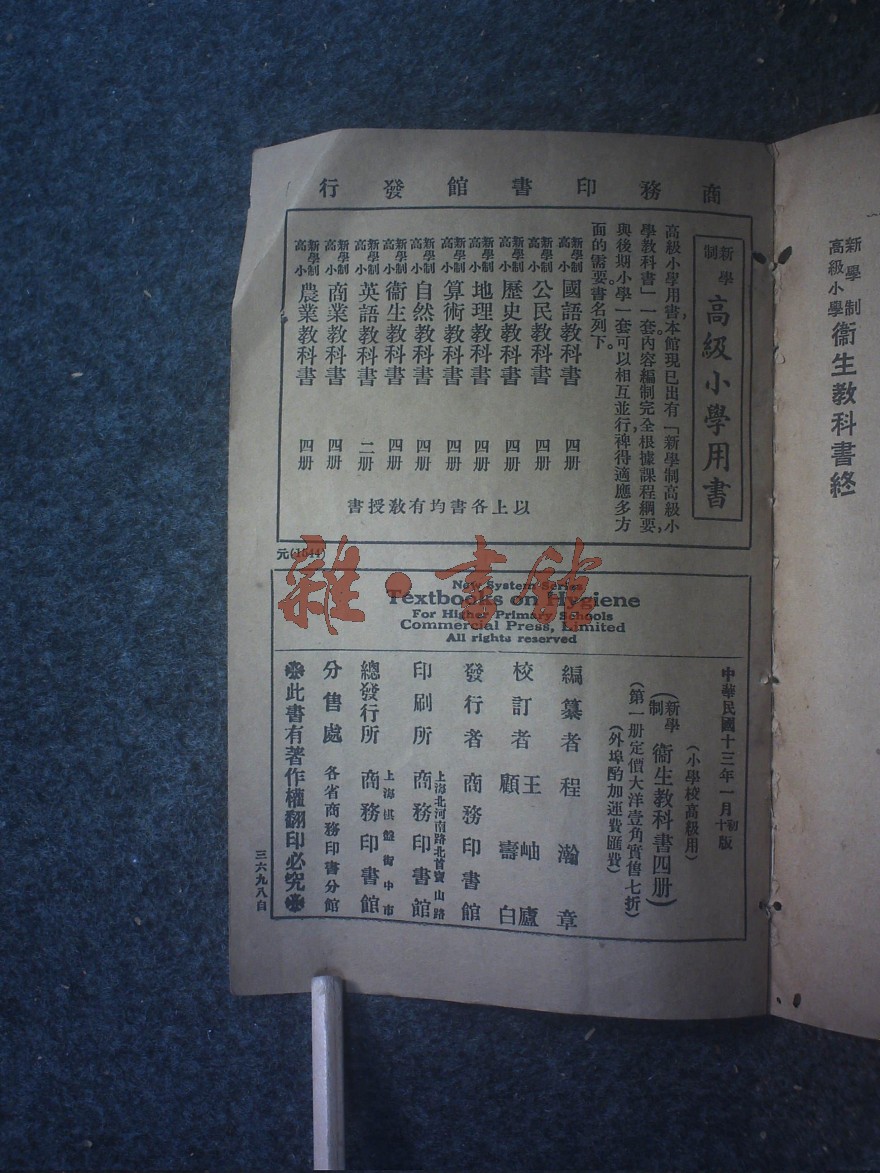 新學制
高級小學
衞生教科書終
商務印書館發行
新學制
高級小學用書
高級小學用書,本館現已出有「新學制高級小
學教科書」一套。內容編制完全根據課程綱要,
與後期小學一套可以相互並行,裨得適應多方
面的需要。書名列下。
新學制高小國語教科書 四册
新學制高小公民教科書 四册
新學制高小歷史教科書 四册
新學制高小地理教科書 四册
新學制高小算術教科書 四册
新學制高小自然教科書 四册
新學制高小衞生教科書 四册
新學制高小英語教科書 二册
新學制高小商業教科書 四册
新學制高小農業教科書 四册
以上各書均有教授書
元(1644)
雜·書館
New System Series
Textbooks on Hygiene
For Higher Primary Schools
Commercial Press, Limited
All rights reserved
中華民國十三年一月初十版
(小學校高級用)
(新學制衞生教科書四册)
(第一册定價大洋壹角實售七折)
(外埠酌加運費匯費)
編纂者 程瀚章
校訂者 王岫廬 顧壽白
發行者 商務印書館
印刷所 上海北河南路北首寶山路 商務印書館
總發行所 上海棋盤街中市 商務印書館
分售處 各省商務印書分館
此書有著作權翻印必究
三六九八自